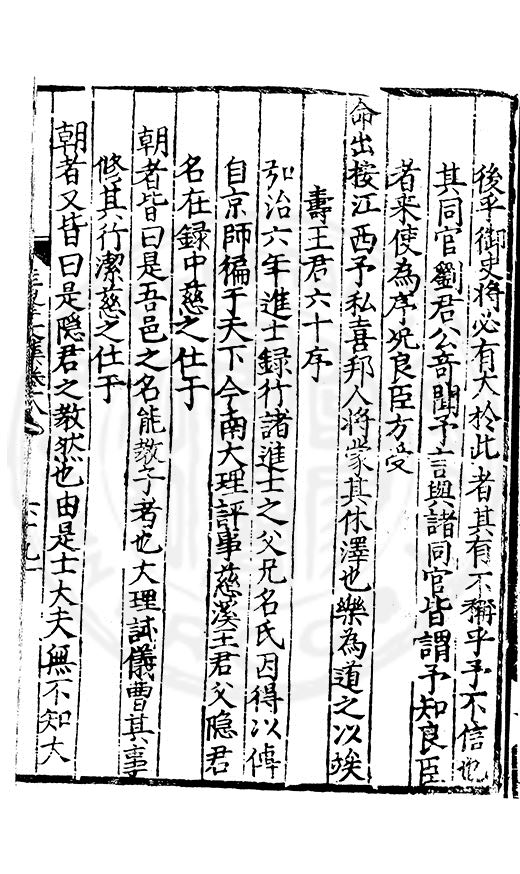 後乎御史將必有大於此者其有不稱乎予不信也
其同官劉君公奇聞予言與諸同官皆謂予知良臣
者来使為序況良臣方受
命出按江西予私喜邦人將蒙其休澤也樂為道之以竢
壽王君六十序
弘治六年進士錄行諸進士之父兄名氏因得以傳
自京師徧于天下今南大理評事慈溪王君父隐君
名在録中慈之仕于
朝者皆曰是吾邑之名能敎子者也大理試儀曹其事
修其行潔慈之仕于
朝者又皆曰是隠君之教然也由是士大夫無不知大
文集卷八
六十九